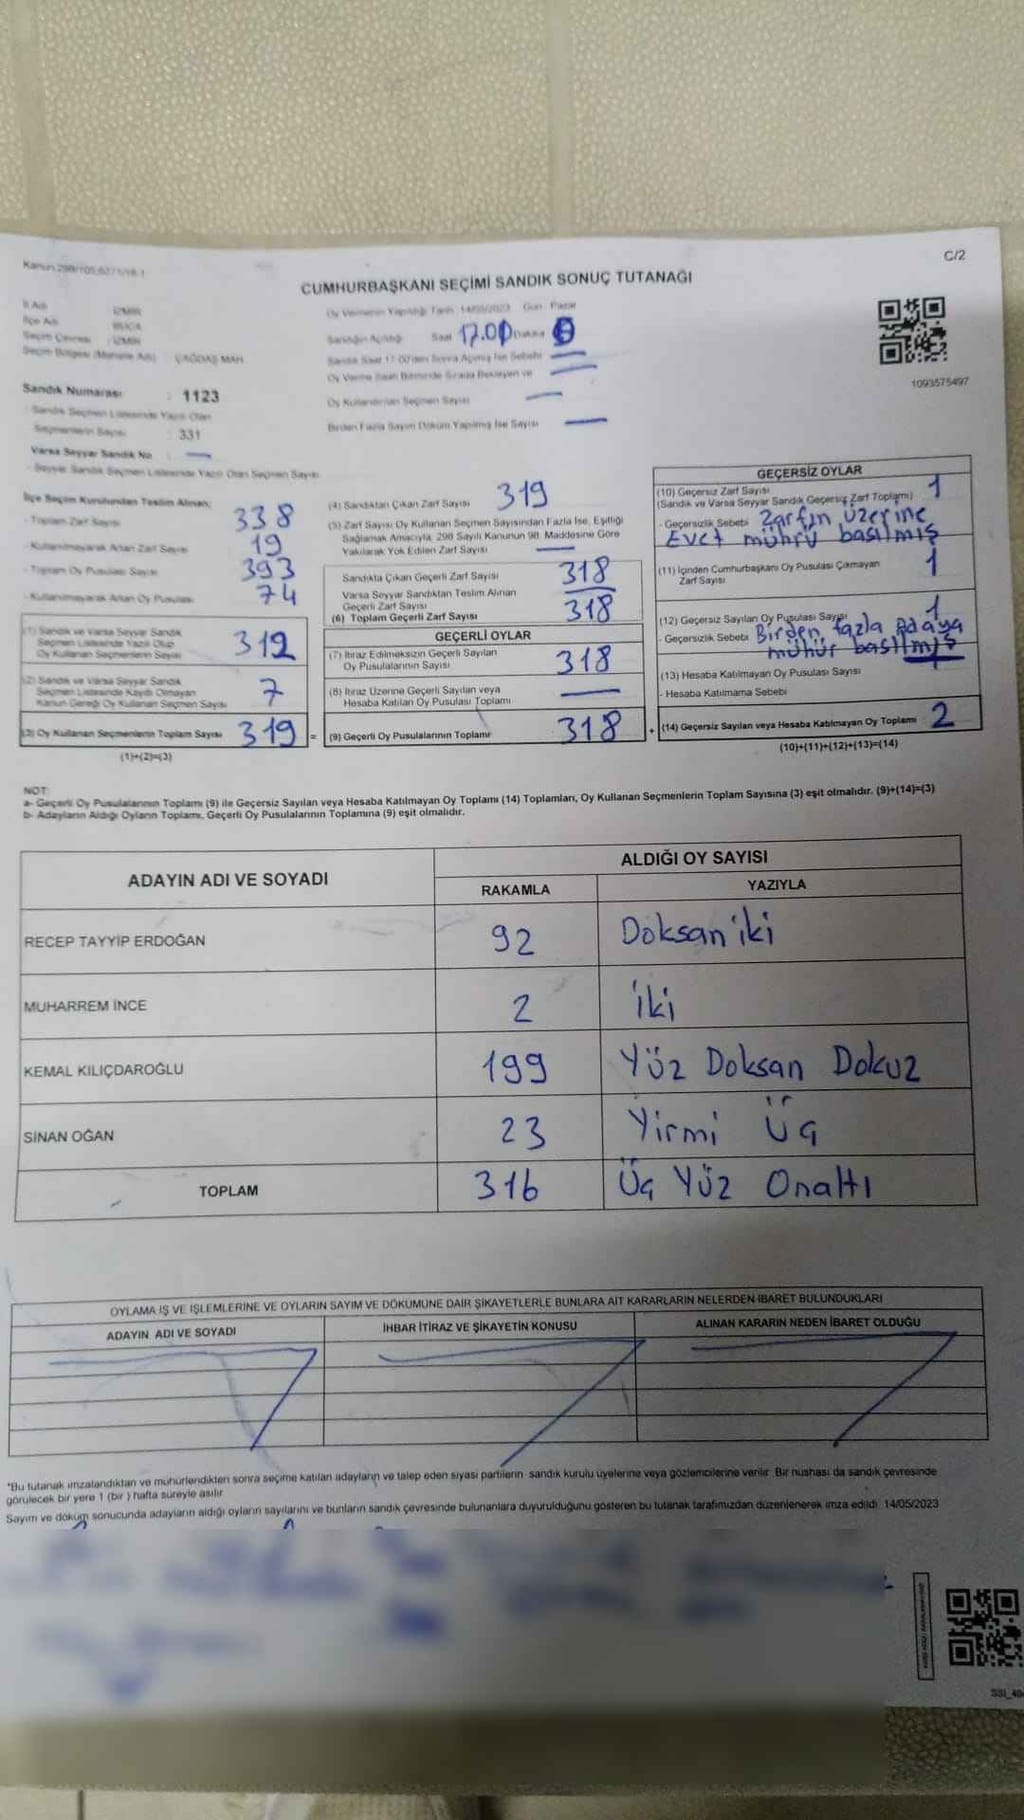 Kanun:298/105,6271/18-1
C/2
CUMHURBAŞKANI SEÇİMİ SANDIK SONUÇ TUTANAĞI
İl Adı : İZMİR
İlçe Adı : BUCA
Seçim Çevresi : İZMİR
Seçim Bölgesi (Mahalle Adı) : ÇAĞDAŞ MAH.
Oy Vermenin Yapıldığı Tarih: 14/05/2023 Gün: Pazar
Sandığın Açıldığı Saat 17.00 Dakika
Sandık Saat 17:00'den Sonra Açılmış İse Sebebi —
Oy Verme Saati Bitiminde Sırada Bekleyen ve —
Oy Kullandırılan Seçmen Sayısı —
Birden Fazla Sayım Döküm Yapılmış İse Sayısı —
1093575497
Sandık Numarası : 1123
Sandık Seçmen Listesinde Yazılı Olan
Seçmenlerin Sayısı : 331
Varsa Seyyar Sandık No : —
- Seyyar Sandık Seçmen Listesinde Yazılı Olan Seçmen Sayısı
İlçe Seçim Kurulundan Teslim Alınan;
- Toplam Zarf Sayısı 338
- Kullanılmayarak Artan Zarf Sayısı 19
- Toplam Oy Pusulası Sayısı 393
- Kullanılmayarak Artan Oy Pusulası 74
(1) Sandık ve Varsa Seyyar Sandık
Seçmen Listesinde Yazılı Olup
Oy Kullanan Seçmenlerin Sayısı 312
(2) Sandık ve Varsa Seyyar Sandık
Seçmen Listesinde Kaydı Olmayan
Kanun Gereği Oy Kullanan Seçmen Sayısı 7
(3) Oy Kullanan Seçmenlerin Toplam Sayısı 319 =
(1)+(2)=(3)
(4) Sandıktan Çıkan Zarf Sayısı 319
(5) Zarf Sayısı Oy Kullanan Seçmen Sayısından Fazla İse, Eşitliği
Sağlamak Amacıyla, 298 Sayılı Kanunun 98. Maddesine Göre
Yakılarak Yok Edilen Zarf Sayısı —
Sandıkta Çıkan Geçerli Zarf Sayısı 318
Varsa Seyyar Sandıktan Teslim Alınan
Geçerli Zarf Sayısı —
(6) Toplam Geçerli Zarf Sayısı 318
GEÇERLİ OYLAR
(7) İtiraz Edilmeksizin Geçerli Sayılan
Oy Pusulalarının Sayısı 318
(8) İtiraz Üzerine Geçerli Sayılan veya
Hesaba Katılan Oy Pusulası Toplamı —
(9) Geçerli Oy Pusulalarının Toplamı 318 +
GEÇERSİZ OYLAR
(10) Geçersiz Zarf Sayısı 1
(Sandık ve Varsa Seyyar Sandık Geçersiz Zarf Toplamı)
- Geçersizlik Sebebi Zarfın üzerine
Evet mührü basılmış
(11) İçinden Cumhurbaşkanı Oy Pusulası Çıkmayan
Zarf Sayısı 1
(12) Geçersiz Sayılan Oy Pusulası Sayısı 1
- Geçersizlik Sebebi Birden fazla Adaya
mühür basılmış
(13) Hesaba Katılmayan Oy Pusulası Sayısı
- Hesaba Katılmama Sebebi
(14) Geçersiz Sayılan veya Hesaba Katılmayan Oy Toplamı 2
(10)+(11)+(12)+(13)=(14)
NOT:
a- Geçerli Oy Pusulalarının Toplamı (9) ile Geçersiz Sayılan veya Hesaba Katılmayan Oy Toplamı (14) Toplamları, Oy Kullanan Seçmenlerin Toplam Sayısına (3) eşit olmalıdır. (9)+(14)=(3)
b- Adayların Aldığı Oyların Toplamı, Geçerli Oy Pusulalarının Toplamına (9) eşit olmalıdır.
ADAYIN ADI VE SOYADI
ALDIĞI OY SAYISI
RAKAMLA YAZIYLA
RECEP TAYYİP ERDOĞAN 92 Doksan iki
MUHARREM İNCE 2 İki
KEMAL KILIÇDAROĞLU 199 Yüz Doksan Dokuz
SİNAN OĞAN 23 Yirmi Üç
TOPLAM 316 Üç Yüz Onaltı
OYLAMA İŞ VE İŞLEMLERİNE VE OYLARIN SAYIM VE DÖKÜMÜNE DAİR ŞİKAYETLERLE BUNLARA AİT KARARLARIN NELERDEN İBARET BULUNDUKLARI
ADAYIN ADI VE SOYADI İHBAR İTİRAZ VE ŞİKAYETİN KONUSU ALINAN KARARIN NEDEN İBARET OLDUĞU
*Bu tutanak imzalandıktan ve mühürlendikten sonra seçime katılan adayların ve talep eden siyasi partilerin sandık kurulu üyelerine veya gözlemcilerine verilir. Bir nüshası da sandık çevresinde
görülecek bir yere 1 (bir ) hafta süreyle asılır.
Sayım ve döküm sonucunda adayların aldığı oyların sayılarını ve bunların sandık çevresinde bulunanlara duyurulduğunu gösteren bu tutanak tarafımızdan düzenlenerek imza edildi. 14/05/2023